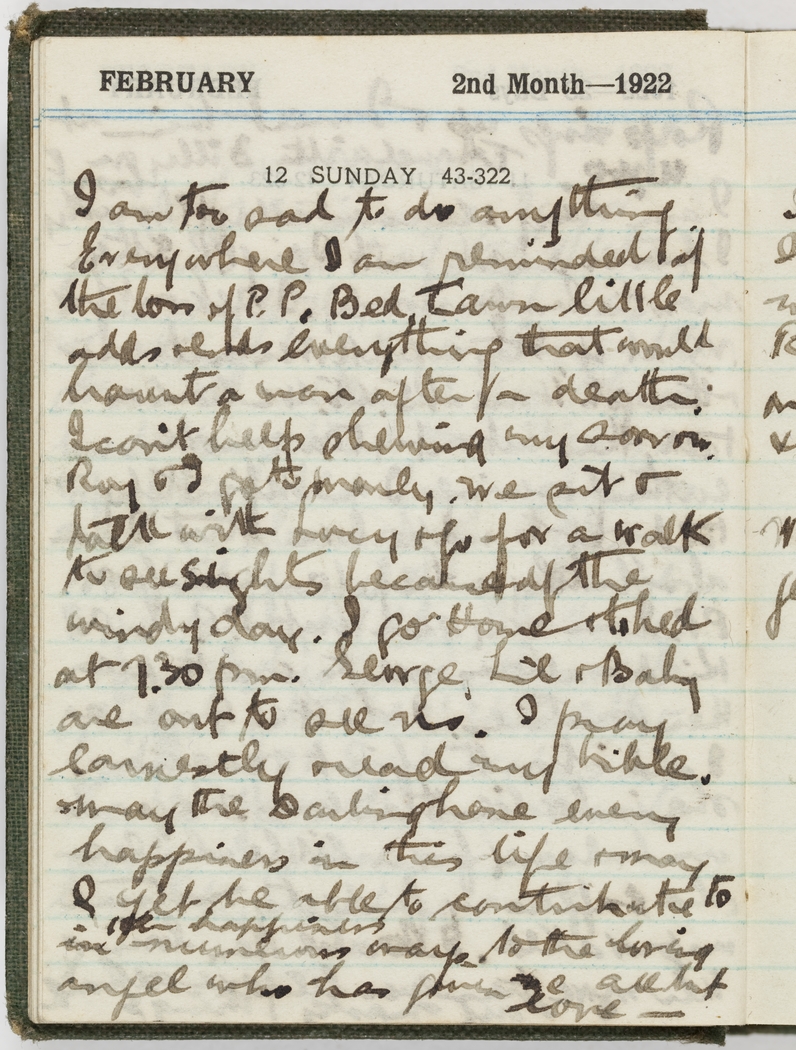 FEBRUARY 2nd Month—1922
12 SUNDAY 43-322
I am too sad to do anything
Everywhere I am reminded of
the loss of P.P. Bed, Lawn little
odds & ends everything that would
haunt a man after a death.
I can't help shewing my sorrow.
Ray & I go to Manly. we sit &
talk with Lucy & go for a walk
to see sights because of the
windy day. I go Home & to bed
at 7.30 pm. George, Lil & Baby
are out to see us. I pray
earnestly & read my bible.
may the Darling have every
happiness in this life & may
I yet be able to contribute to
in happiness
numerous ways to the loving
angel who has given me all but
Love —